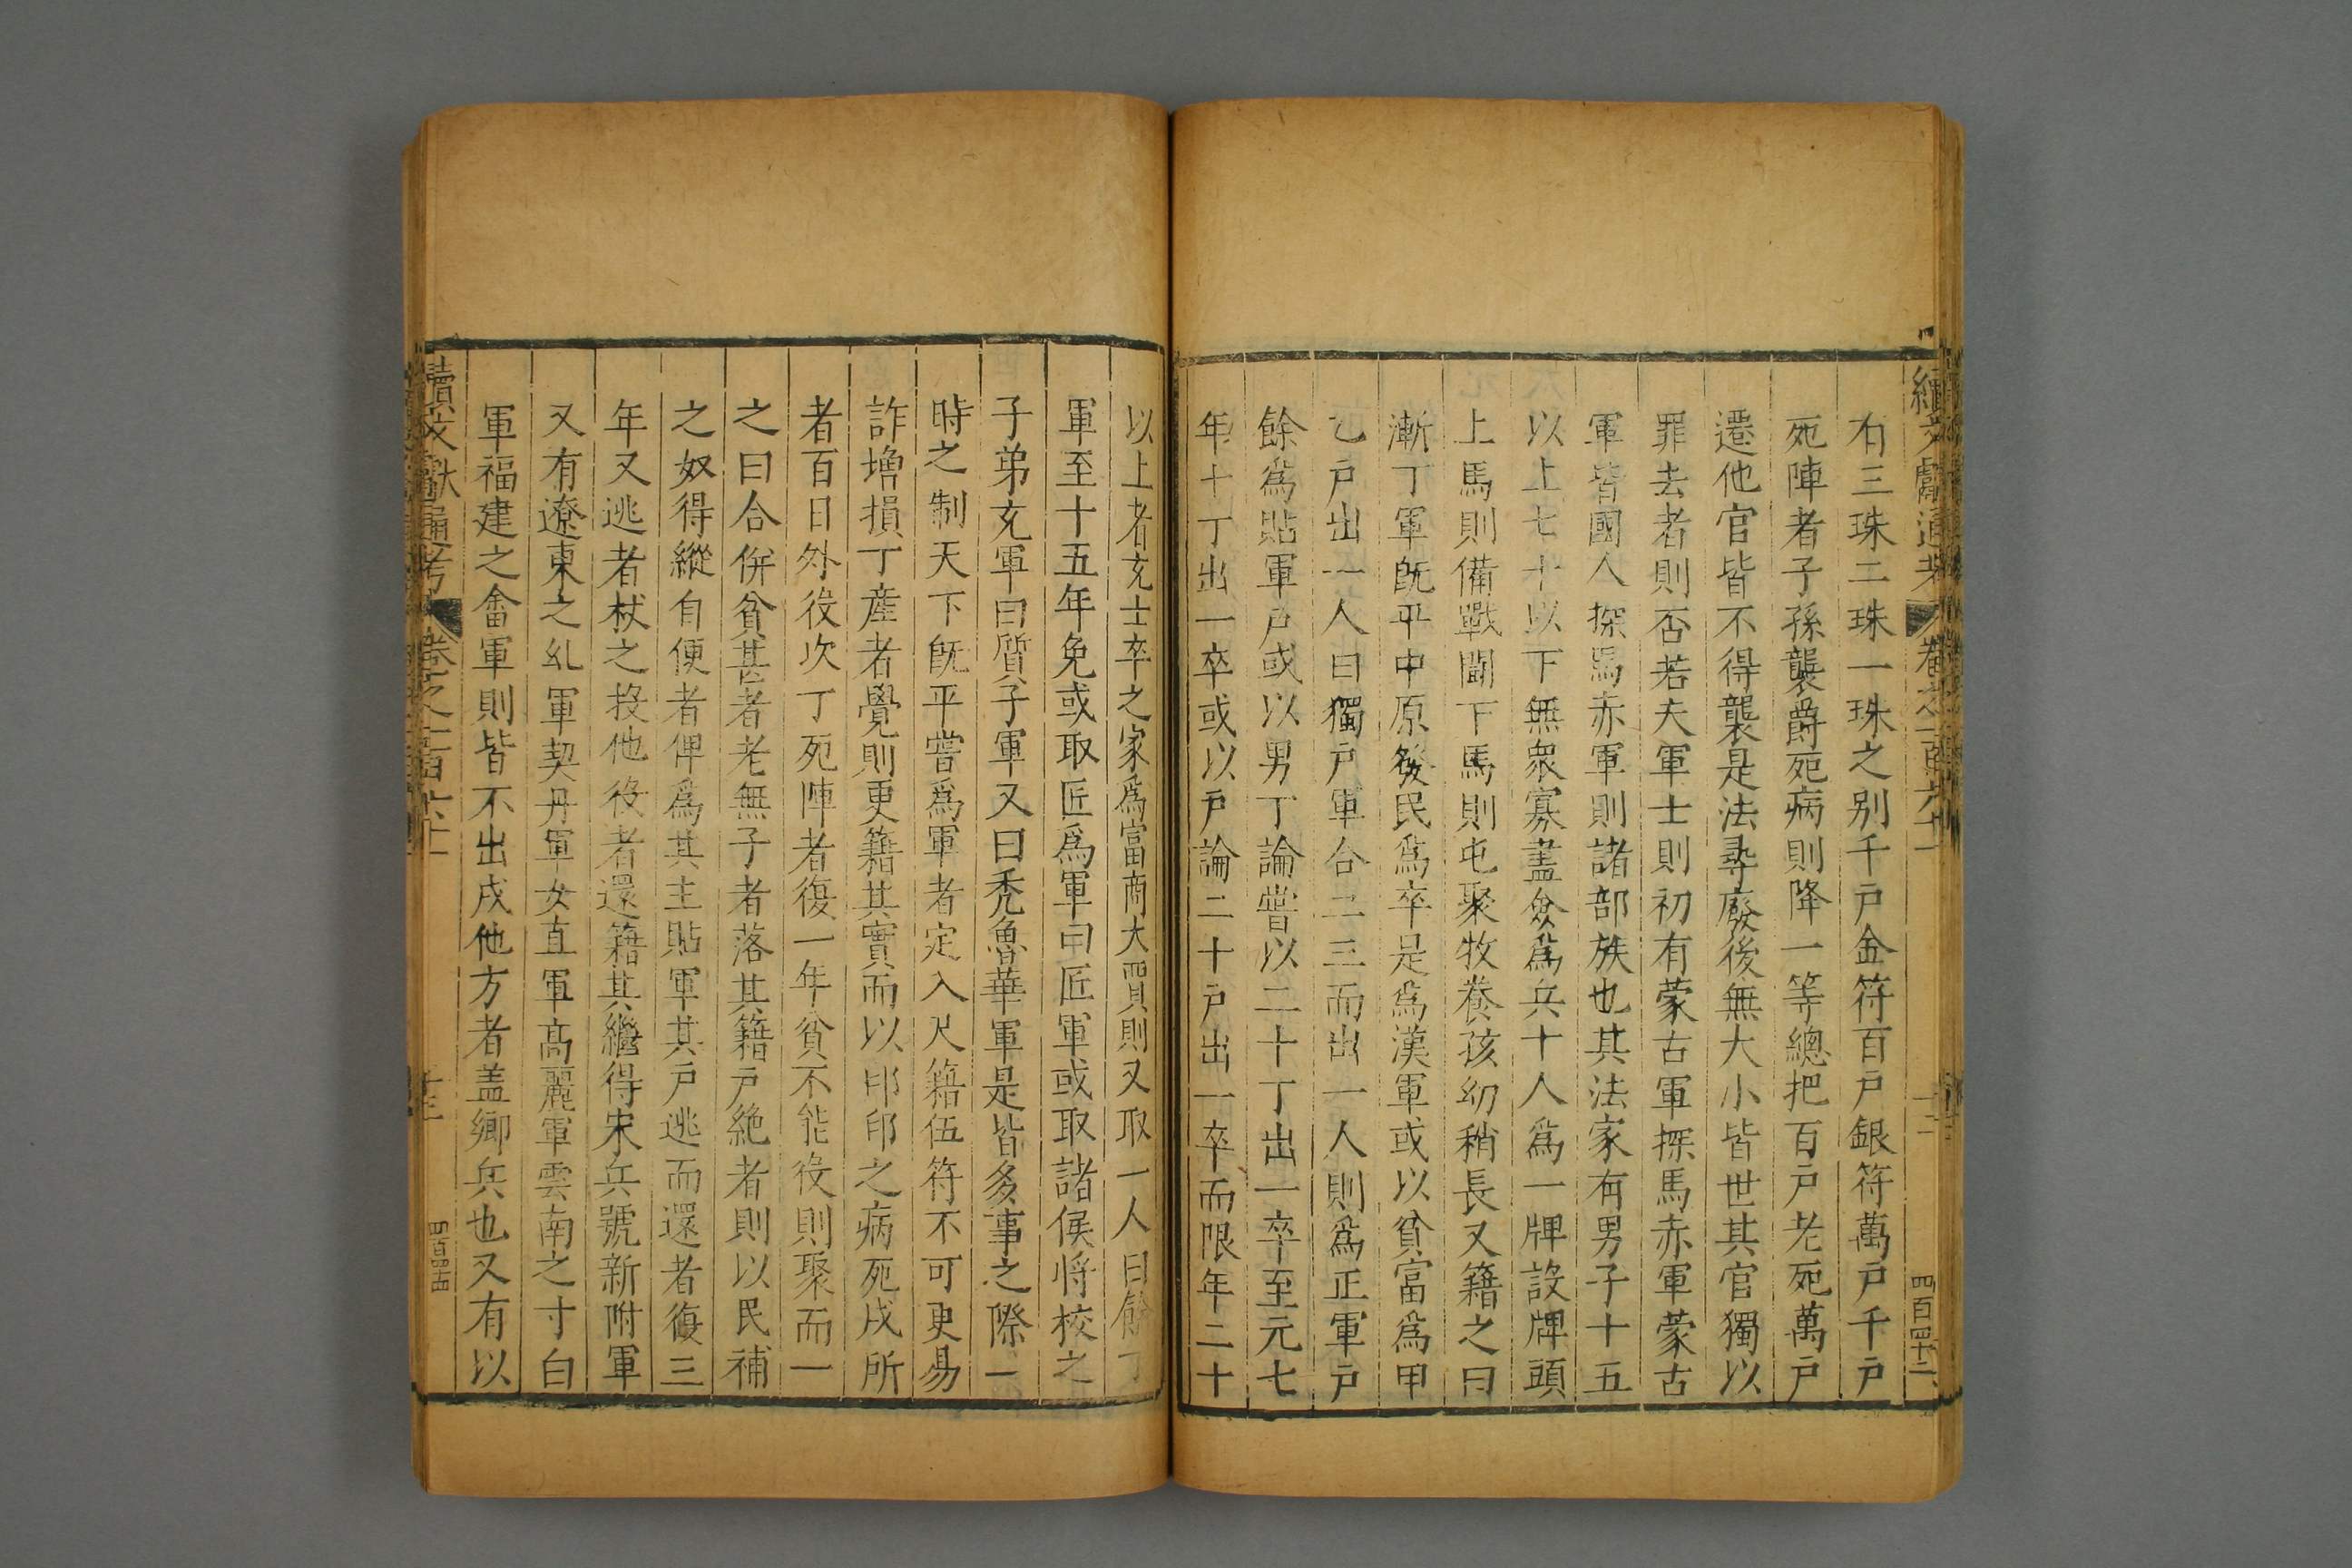 續文獻通考 卷之一百六十一 十二 四百四十二
有三珠二珠一珠之别千戸金符百戸銀符萬戸千戸
死陣者子孫襲爵死病則降一等總把百戸老死萬戸
遷他官皆不得襲是法尋廢後無大小皆世其官獨以
罪去者則否若夫軍士則初有蒙古軍探馬赤軍蒙古
軍皆國人探馬赤軍則諸部族也其法家有男子十五
以上七十以下無衆寡盡僉爲兵十人爲一牌設牌頭
上馬則備戰鬪下馬則屯聚牧養孩幼稍長又籍之曰
漸丁軍旣平中原發民爲卒是爲漢軍或以貧富爲甲
乙戸出一人曰獨戸軍合二三而出一人則爲正軍戸
餘爲貼軍戸或以男丁論嘗以二十丁出一卒至元七
年十丁出一卒或以戸論二十戸出一卒而限年二十
以上者充士卒之家爲富商大賈則又取一人曰餘丁
軍至十五年免或取匠爲軍曰匠軍或取諸侯将校之
子弟充軍曰質子軍又曰禿魯華軍是皆多事之際一
時之制天下旣平嘗爲軍者定入尺籍伍符不可更易
詐增損丁產者覺則更籍其實而以印印之病死戍所
者百日外役次丁死陣者復一年貧不能役則聚而一
之曰合併貧甚者老無子者落其籍戸絶者則以民補
之奴得縱自便者俾爲其主貼軍其戸逃而還者復三
年又逃者杖之投他役者還籍其繼得宋兵號新附軍
又有遼東之糺軍契丹軍女直軍髙麗軍雲南之寸白
軍福建之畬軍則皆不出戍他方者盖鄉兵也又有以
續文獻通考 卷之一百六十一 十三